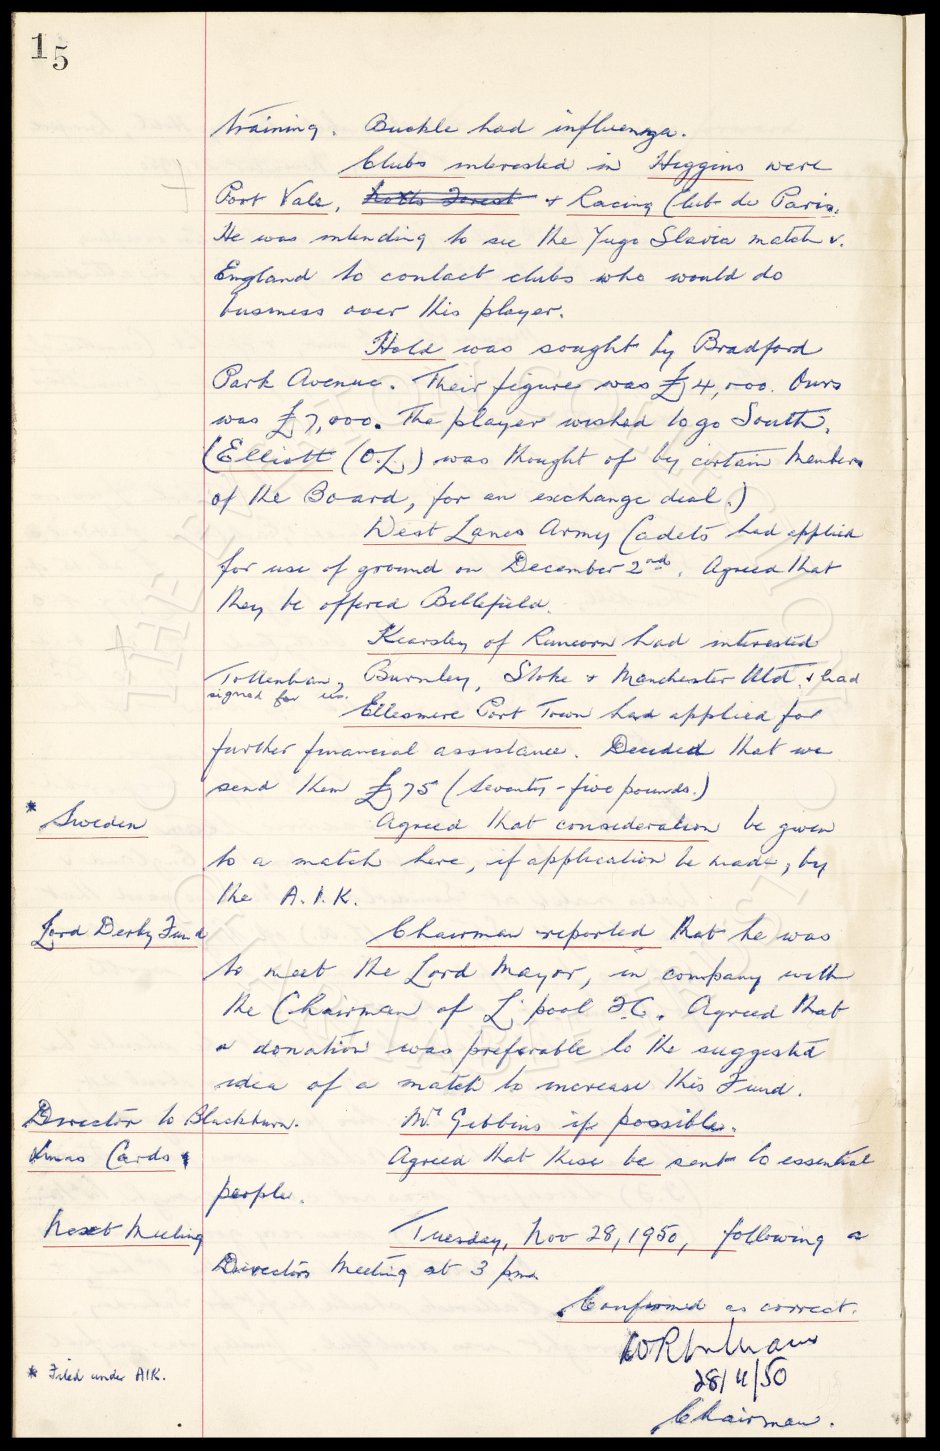 15
training. Buckle had influenza.
Clubs interested in Higgins were
Port Vale, Notts Forest + Racing Club de Paris.
He was intending to see the Yugo Slavia match v.
England to contact clubs who would do
business over this player.
Hold was sought by Bradford
Park Avenue. Their figure was £4,000. Ours
was £7,000. The player wished to go South.
(Elliott (O.L.) was thought of by certain Members
of the Board, for an exchange deal.)
West Lancs Army Cadets had applied
for use of ground on December 2nd. Agreed that
they be offered Bellefield.
Kearsley of Runcorn had interested
Tottenham, Burnley, Stoke + Manchester Utd. + had
signed for us.
Ellesmere Port Town had applied for
further financial assistance. Decided that we
send them £75 (Seventy-five pounds.)
* Sweden Agreed that consideration be given
to a match here, if application be made, by
the A.I.K.
Lord Derby Fund Chairman reported that he was
to meet the Lord Mayor, in company with
the Chairman of L'pool F.C. Agreed that
a donation was preferable to the suggested
idea of a match to increase this Fund.
Director to Blackburn. Mr Gibbins if possible.
Xmas Cards Agreed that these be sent to essential
people.
Next Meeting Tuesday, Nov 28, 1950, following a
Directors Meeting at 3 pm.
Confirmed as correct.
28/11/50
* Filed under AIK.
Chairman.